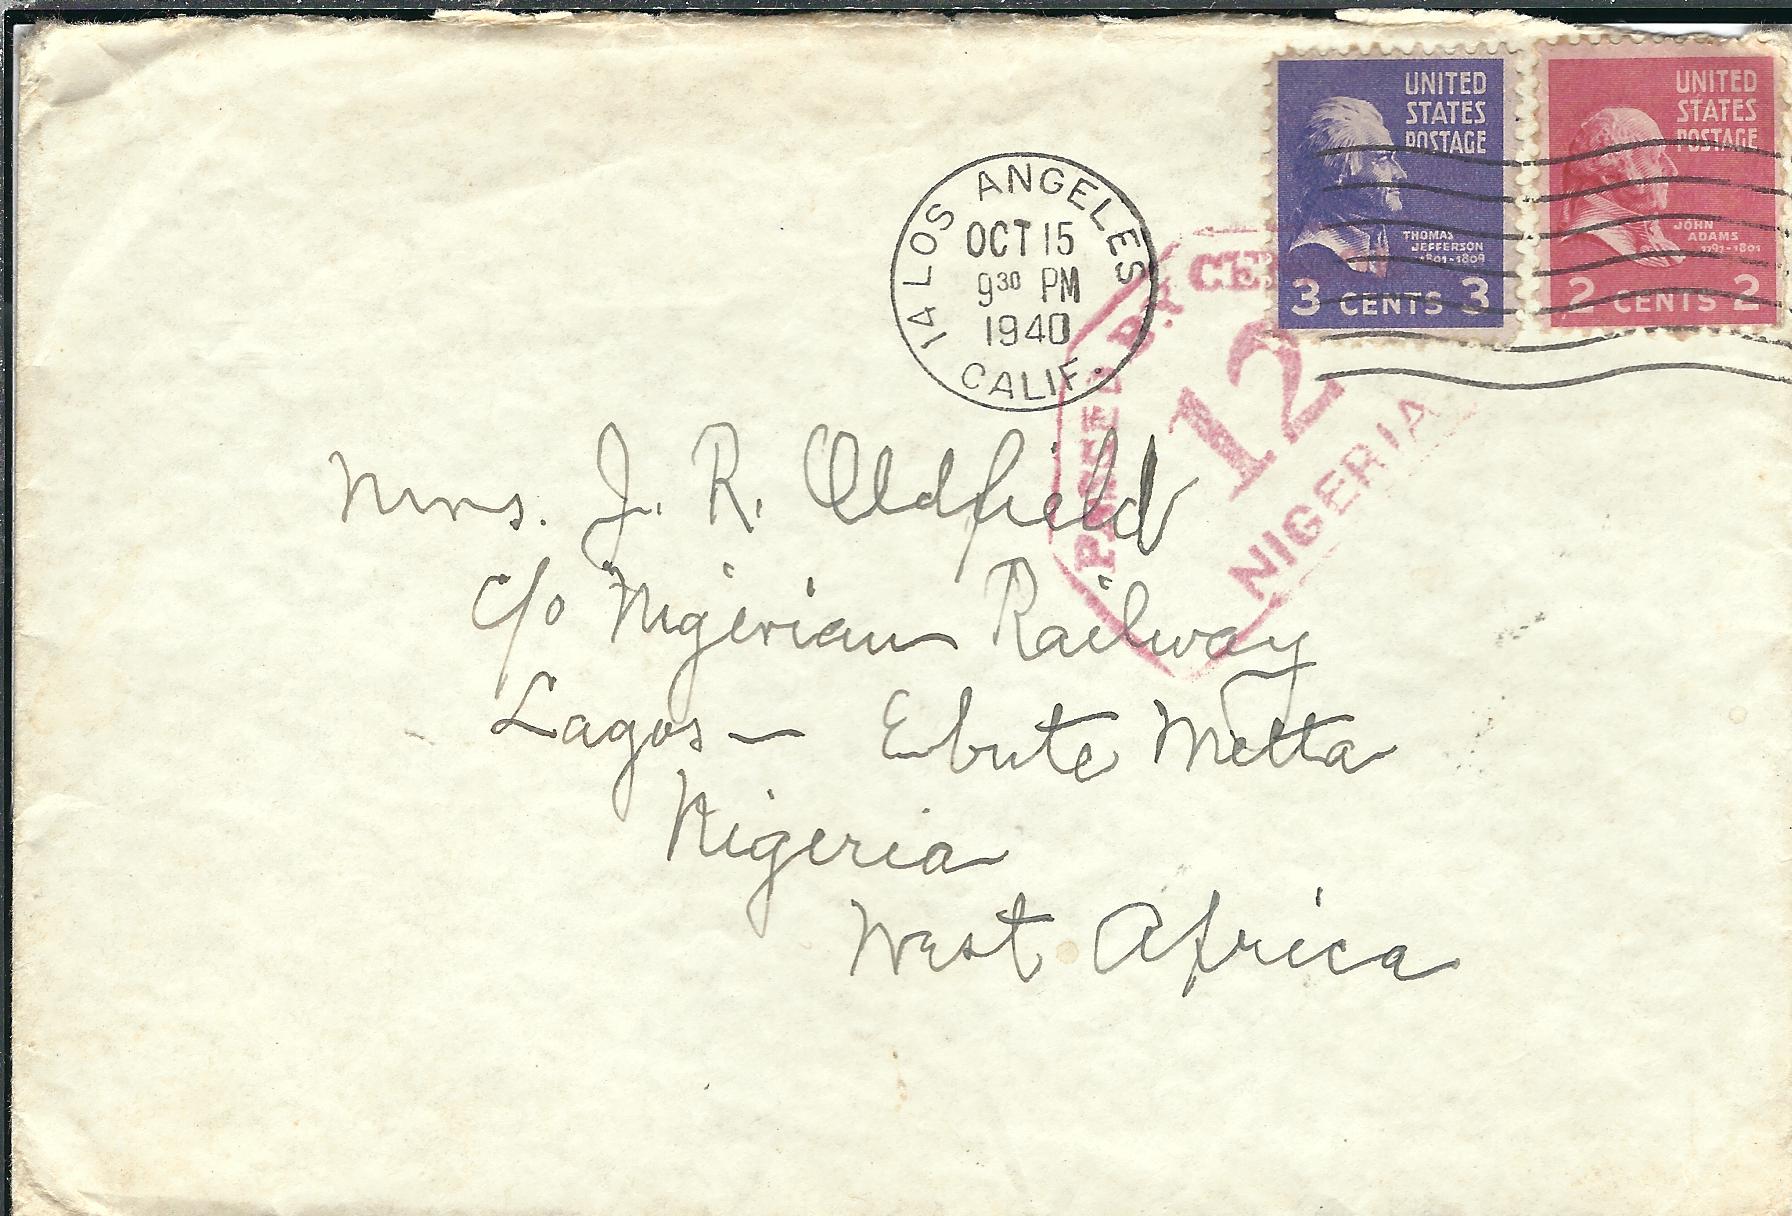 UNITED
STATES
POSTAGE
THOMAS
JEFFERSON
1801-1809
3 CENTS 3
UNITED
STATES
POSTAGE
JOHN
ADAMS
1797-1801
2 CENTS 2
14 LOS ANGELES
OCT 15
9 30 PM
1940
CALIF.
PASSED BY
CE
12
NIGERIA
Mrs. J. R. Oldfield
c/o Nigerian Railway
Lagos — Ebute Metta
Nigeria
West Africa